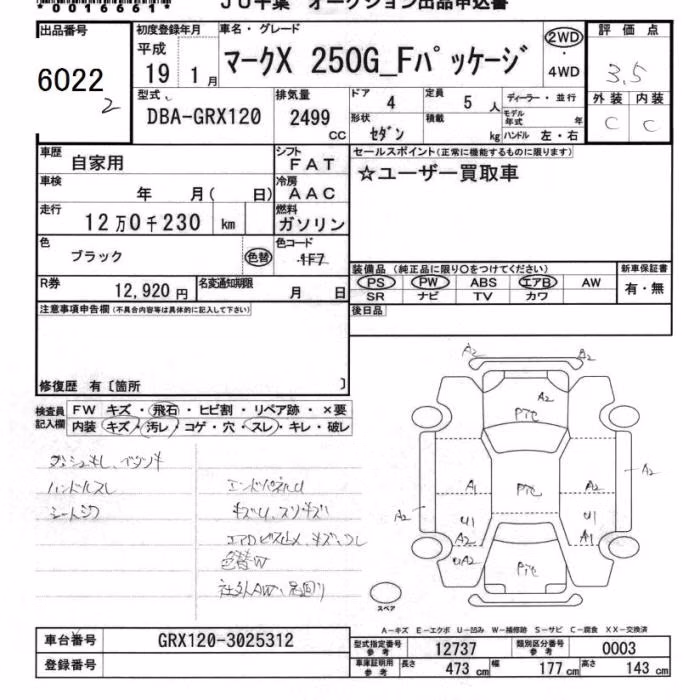 *0016661*
JU千葉 オークション出品申込書
出品番号 初度登録年月 車名・グレード 評価点
6022
2
平成 19 1月 マークX 250G_Fパッケージ 2WD・4WD 3.5
型式 排気量 ドア 4 定員 5人 ディーラー・並行 外装 内装
DBA-GRX120 2499cc 形状 セダン 積載 kg モデル年式 年 ハンドル 左・右 C C
車歴 自家用 シフト FAT セールスポイント(正常に機能するものに限ります)
車検 年 月( 日) 冷房 AAC ☆ユーザー買取車
走行 12万0千230 km 燃料 ガソリン
色 ブラック 色替 色コード
装備品(純正品に限り○をつけてください) 新車保証書
PS PW ABS エアB AW 有・無
SR ナビ TV カワ
R券 12,920円 名変通知期限 月 日
注意事項申告欄(不具合内容等は具体的に記入して下さい) 後日品
修復歴 有〔箇所 〕
検査員記入欄 FW キズ・飛石・ヒビ割・リペア跡・×要
内装 キズ・汚レ・コゲ・穴・スレ・キレ・破レ
ハンドルスレ
色替W
A2 A2
A2
P下七
A1 P下七 A2
A2 A2
U1 U1
A2 A1
UA2 P下七
スペア
A-キズ E-エクボ U-凹み W-補修跡 S-サビ C-腐食 XX-交換済
車台番号 GRX120-3025312 型式指定番号参考 12737 類別区分番号参考 0003
登録番号 車庫証明用参考 長さ 473cm 幅 177cm 高さ 143cm